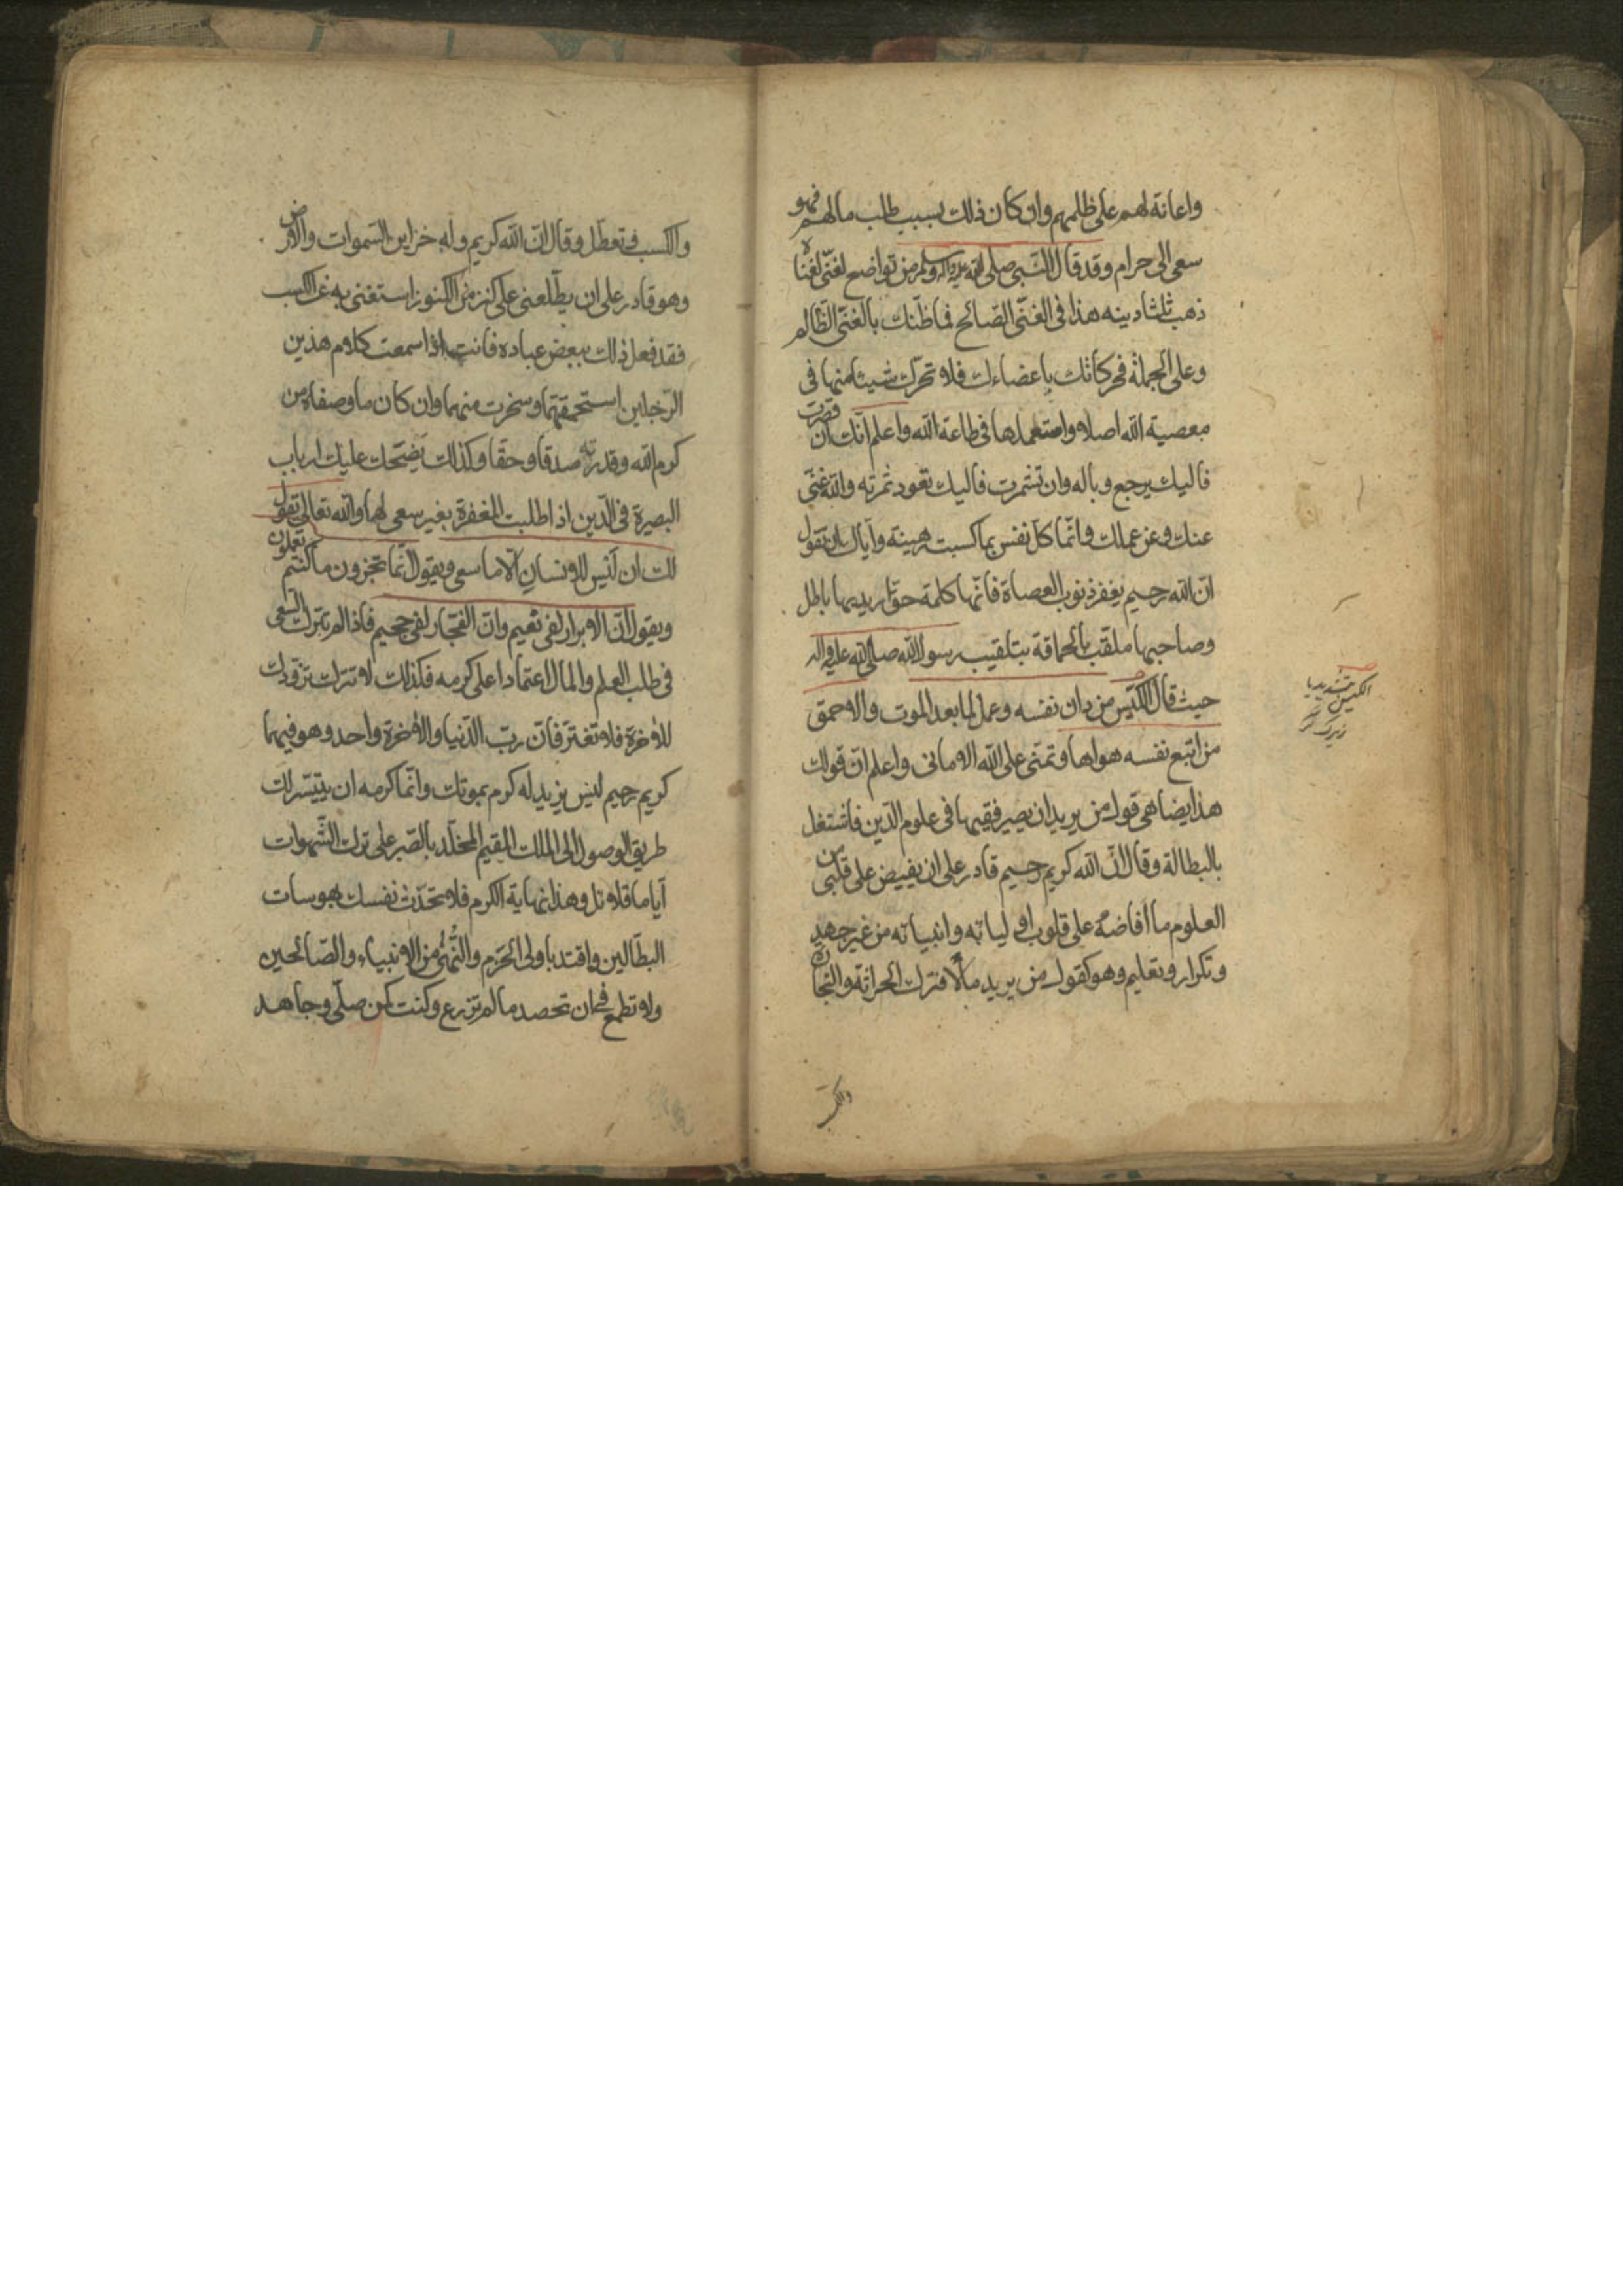 واعانة لهم على ظلمهم وان كان ذلك بسبب طلب مالهم فهو
سعى الى حرام وقد قال النّبى صلى الله عليه واله وسلم من تواضع لغنّى لغناه
ذهب ثلثا دينه هذا فى الغنّى الصّالح فما ظنّك بالغنّى الظّالم
وعلى الجملة فحركاتك باعضاءك فلا تحرّك شيئا منها فى
معصية الله اصلا واستعملها فى طاعة الله واعلم انّك ان قصرت
فاليك يرجع وباله وان تشمرت فاليك تعود ثمرته والله غنّى
عنك وعن عملك وانّما كلّ نفس بما كسبت رهينة وايّاك ان تقول
انّ الله رحيم يغفر ذنوب العصاة فانّها كلمة حقّ اريد بها باطل
وصاحبها ملقّب بالحماقة بتلقيب رسول الله صلى الله عليه واله
حيث قال الكيّس من دان نفسه وعمل لما بعد الموت والاحمق
من اتبع نفسه هواها وتمنى على الله الامانى واعلم انّ قولك
هذا يضاهى قول من يريد ان يصير فقيها فى علوم الدّين فاشتغل
بالبطالة وقال انّ الله كريم رحيم قادر على ان يفيض على قلبى من
العلوم ما افاضه على قلوب اوليائه وانبيائه من غير جهد
وتكرار وتعليم وهو كقول من يريد مالا فترك الحراثة والتجارة
الكيس بتشديد يا
زيرك
والكسب
والكسب فتعطّل وقال انّ الله كريم وله خزاين السّموات والارض
وهو قادر على ان يطّلعنى على كنز من الكنوز استغنى به عن الكسب
فقد فعل ذلك ببعض عباده فانت اذا سمعت كلام هذين
الرّجلين استحمقتهما وسخرت منهما وان كان ما وصفاه من
كرم الله وقدرته صدقا وحقا وكذلك يضحك عليك ارباب
البصيرة فى الدّين اذا طلبت المغفرة بغير سعى لها والله تعالى يقول
لك ان ليس للانسان الّا ما سعى ويقول انّما تجزون ما كنتم تعملون
ويقول انّ الابرار لفى نعيم وانّ الفجّار لفى جحيم فاذا لم تترك السّعى
فى طلب العلم والمال اعتمادا على كرمه فكذلك لا تترك تزوّدك
للاخرة فلا تغتر فانّ ربّ الدّنيا والاخرة واحد وهو فيهما
كريم رحيم ليس يزيد له كرم بموتك وانّما كرمه ان ييتسّر لك
طريق الوصول الى الملك المقيم المخلّد بالصّبر على ترك الشّهوات
ايّاما قلائل وهذا نهاية الكرم فلا تحدّث نفسك بهوسات
البطّالين واقتد باولى الحزم والنّهى من الانبياء والصّالحين
ولا تطمع فى ان تحصد ما لم تزرع وكنت كمن صلّى وجاهد